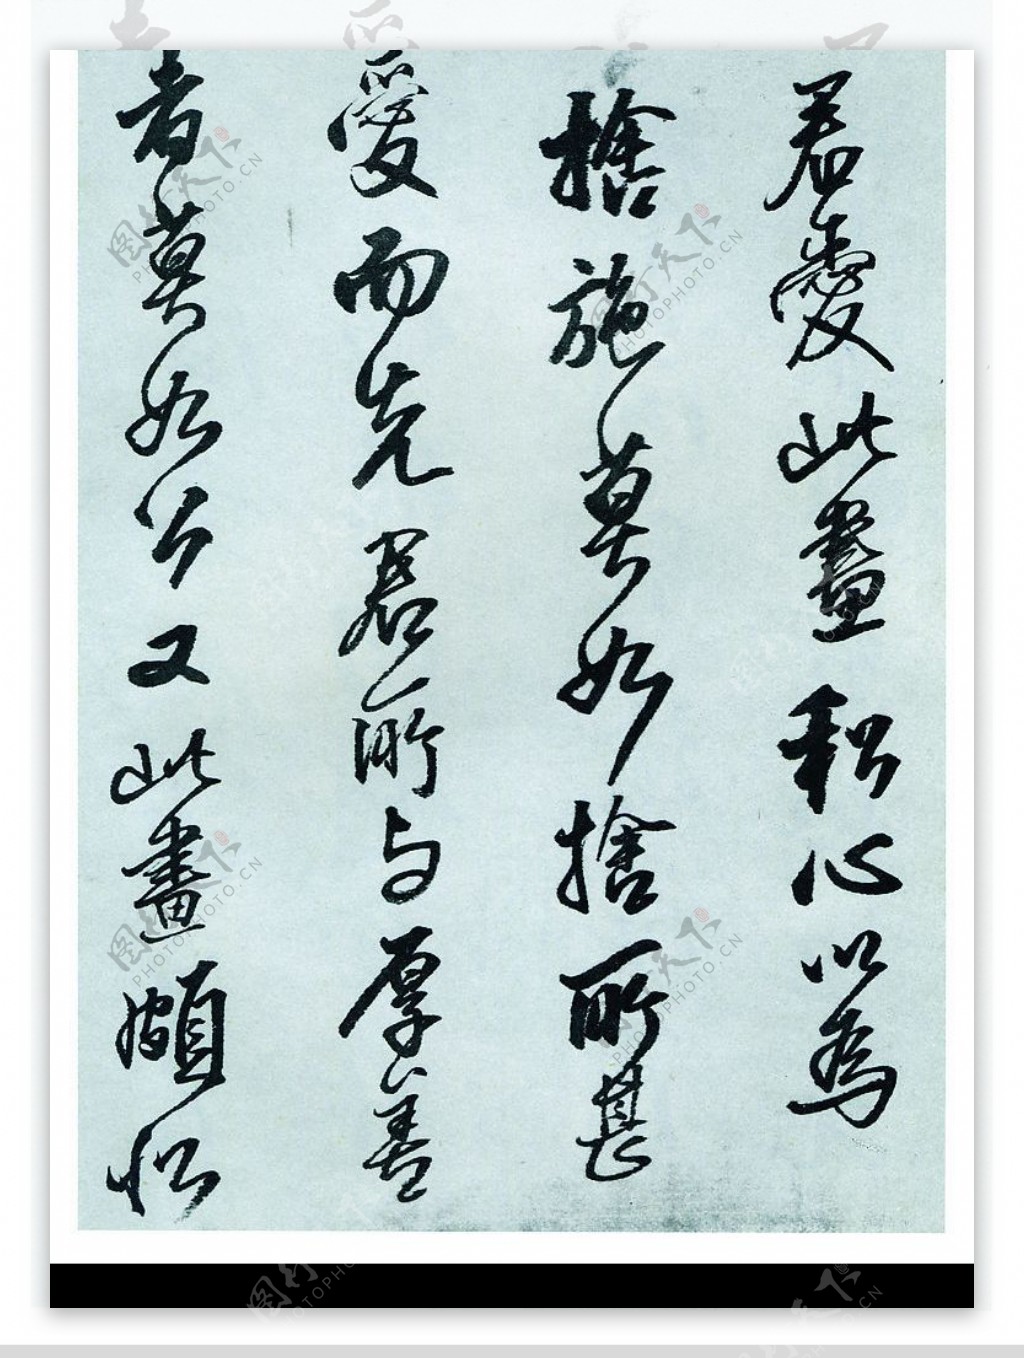 君愛此畫私心以為
捨施莫如捨所甚
愛而先君所与厚善
者莫如公又此畫頗似
图行天下
PHOTOPHOTO.CN